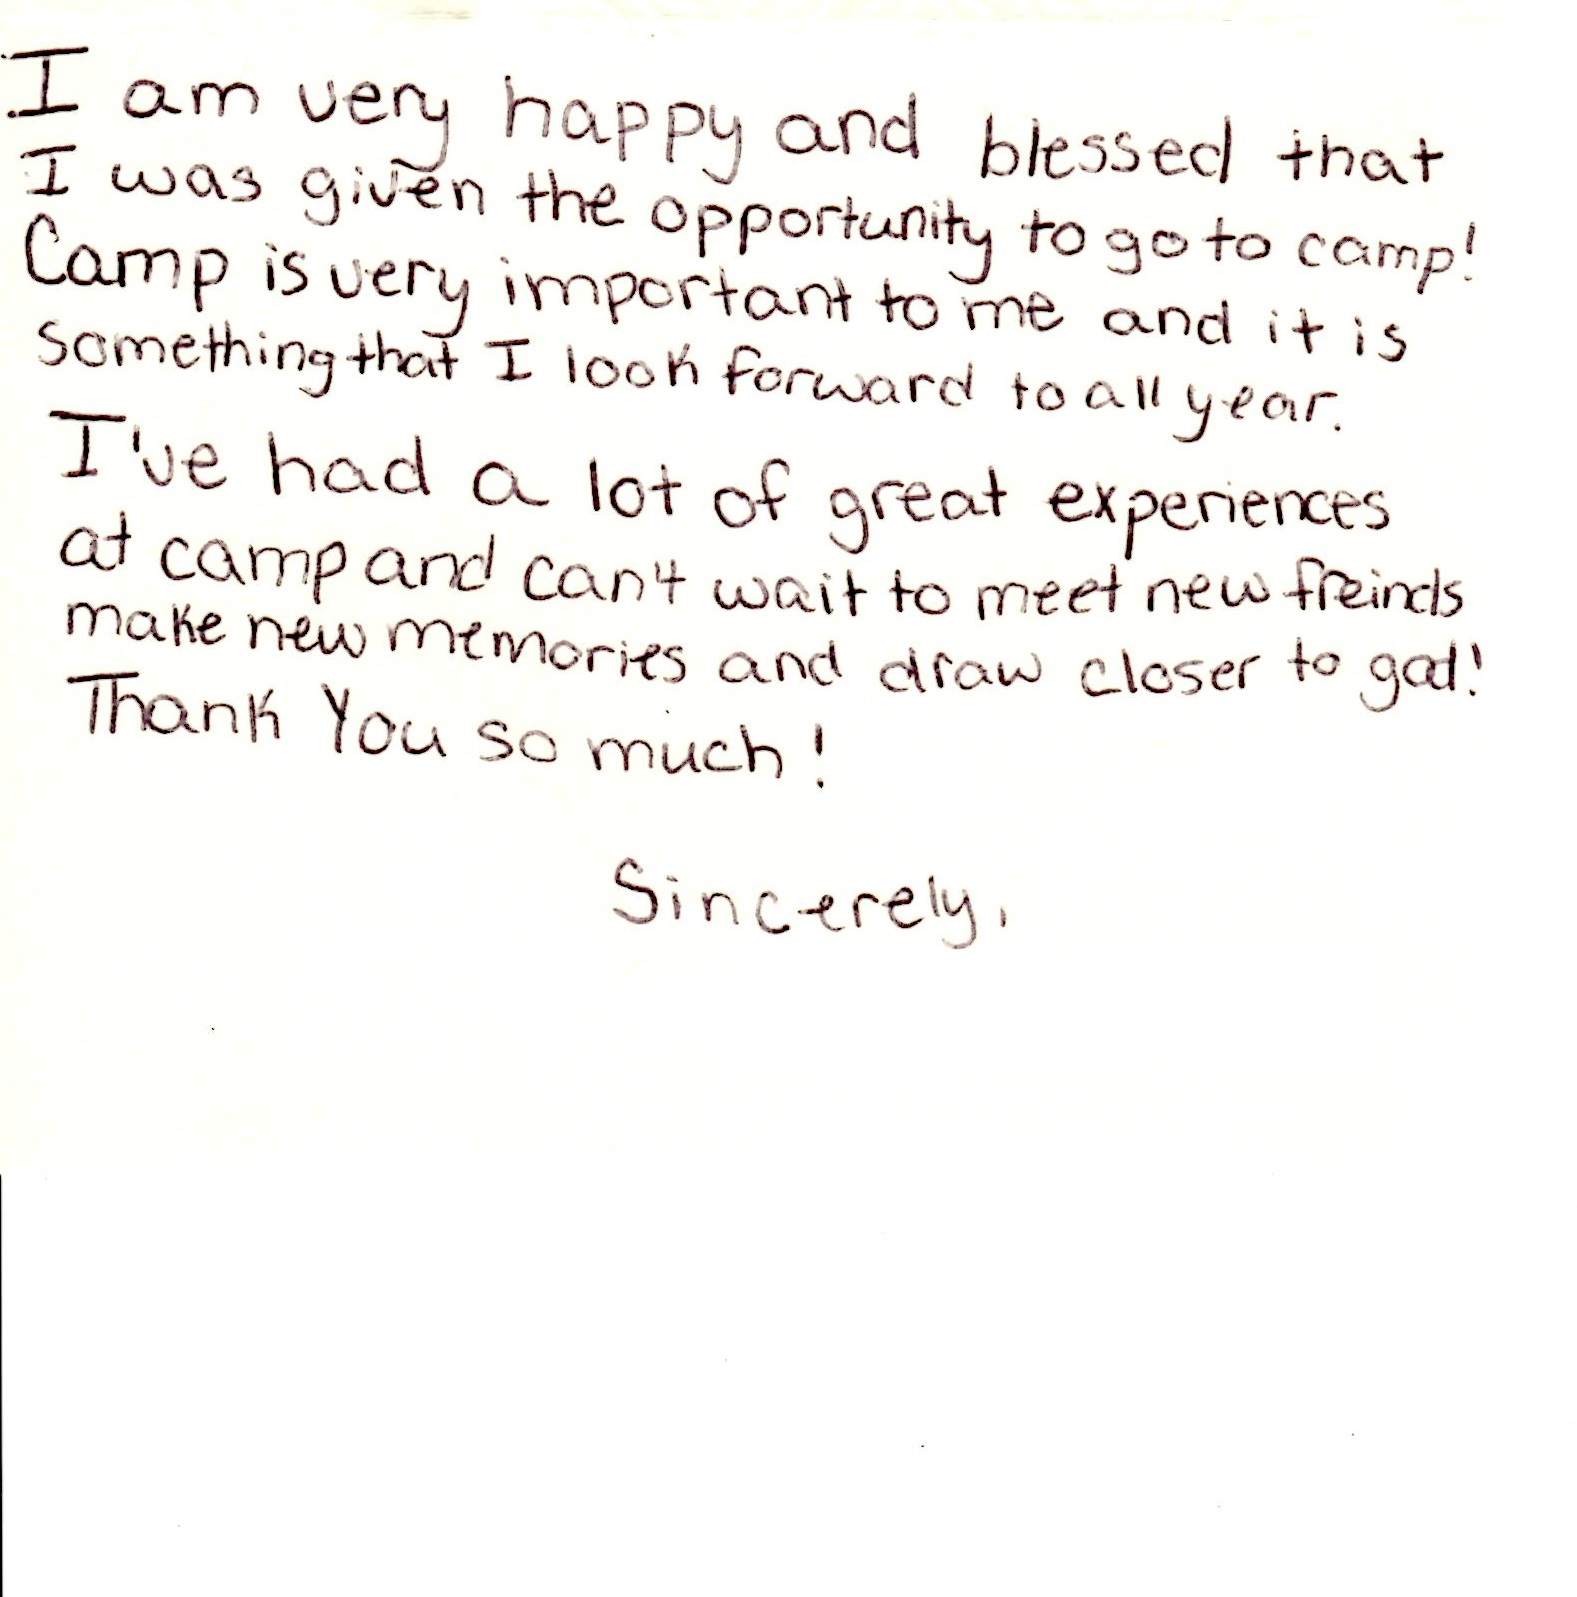 I am very happy and blessed that
I was given the opportunity to go to camp!
Camp is very important to me and it is
something that I look forward to all year.
I've had a lot of great experiences
at camp and can't wait to meet new freinds
make new memories and draw closer to god!
Thank You so much!
Sincerely,